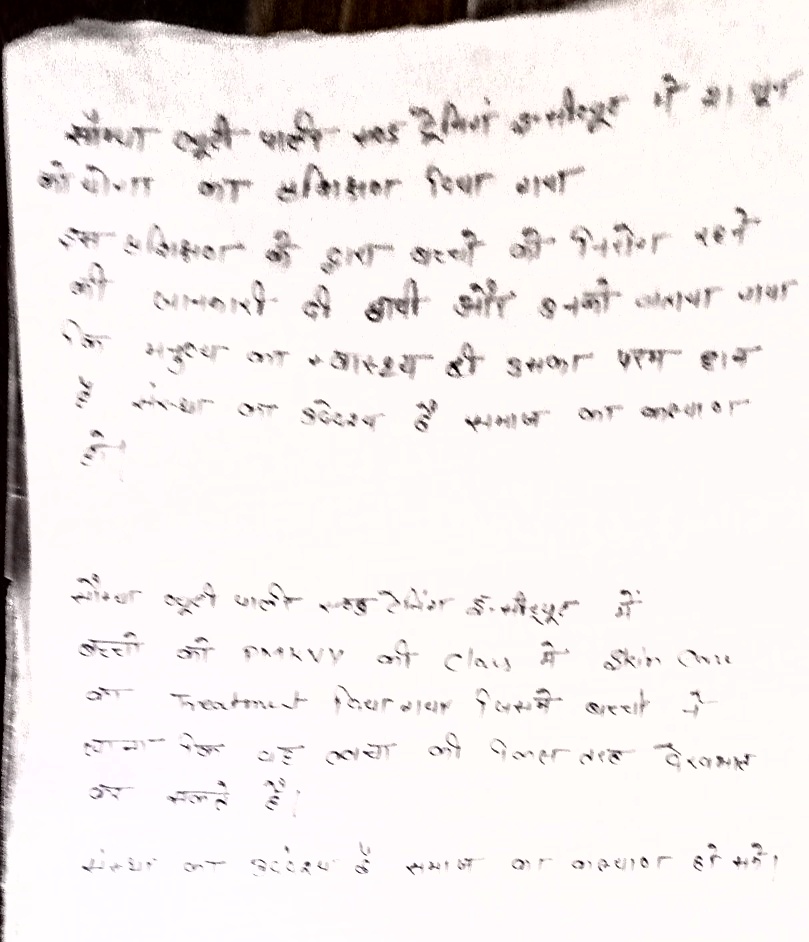 सौम्या ब्यूटी पार्लर एण्ड ट्रेनिंग इन्स्टीट्यूट में 21 जून
को योगा का प्रशिक्षण दिया गया
इस प्रशिक्षण के द्वारा बच्चों को निरोग रहने
की जानकारी दी गयी और उनको बताया गया
कि मनुष्य का स्वास्थ्य ही उसका परम
है संस्था का उद्देश्य है समाज का कल्याण
हो।
सौम्या ब्यूटी पार्लर एण्ड ट्रेनिंग इंस्टीट्यूट में
बच्चों को PMKVY की Class में Skin Care
का Treatment दिया गया जिसमें बच्चों ने
जाना कि वह त्वचा की किस तरह देखभाल
कर सकते हैं।
संस्था का उद्देश्य है समाज का कल्याण हो सके।